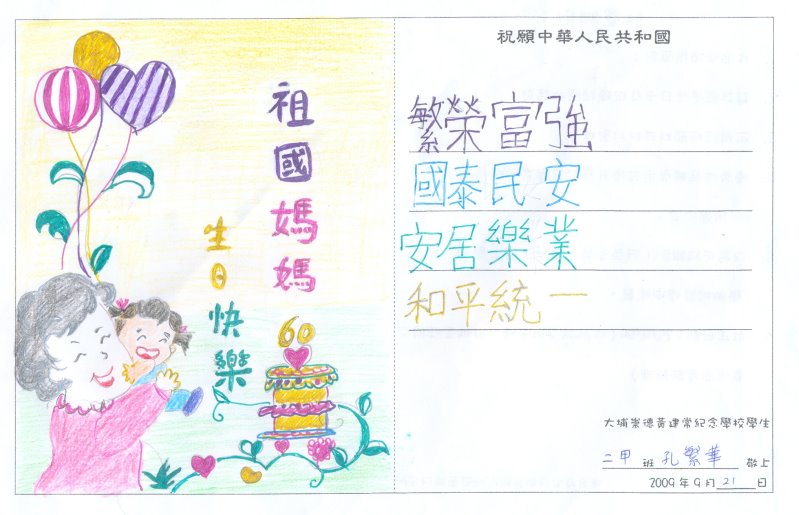 祖國媽媽
生日快樂
60
祝願中華人民共和國
繁榮富強
國泰民安
安居樂業
和平統一
大埔崇德黃建常紀念學校學生
二甲 班 孔繁華 敬上
2009年9月21日